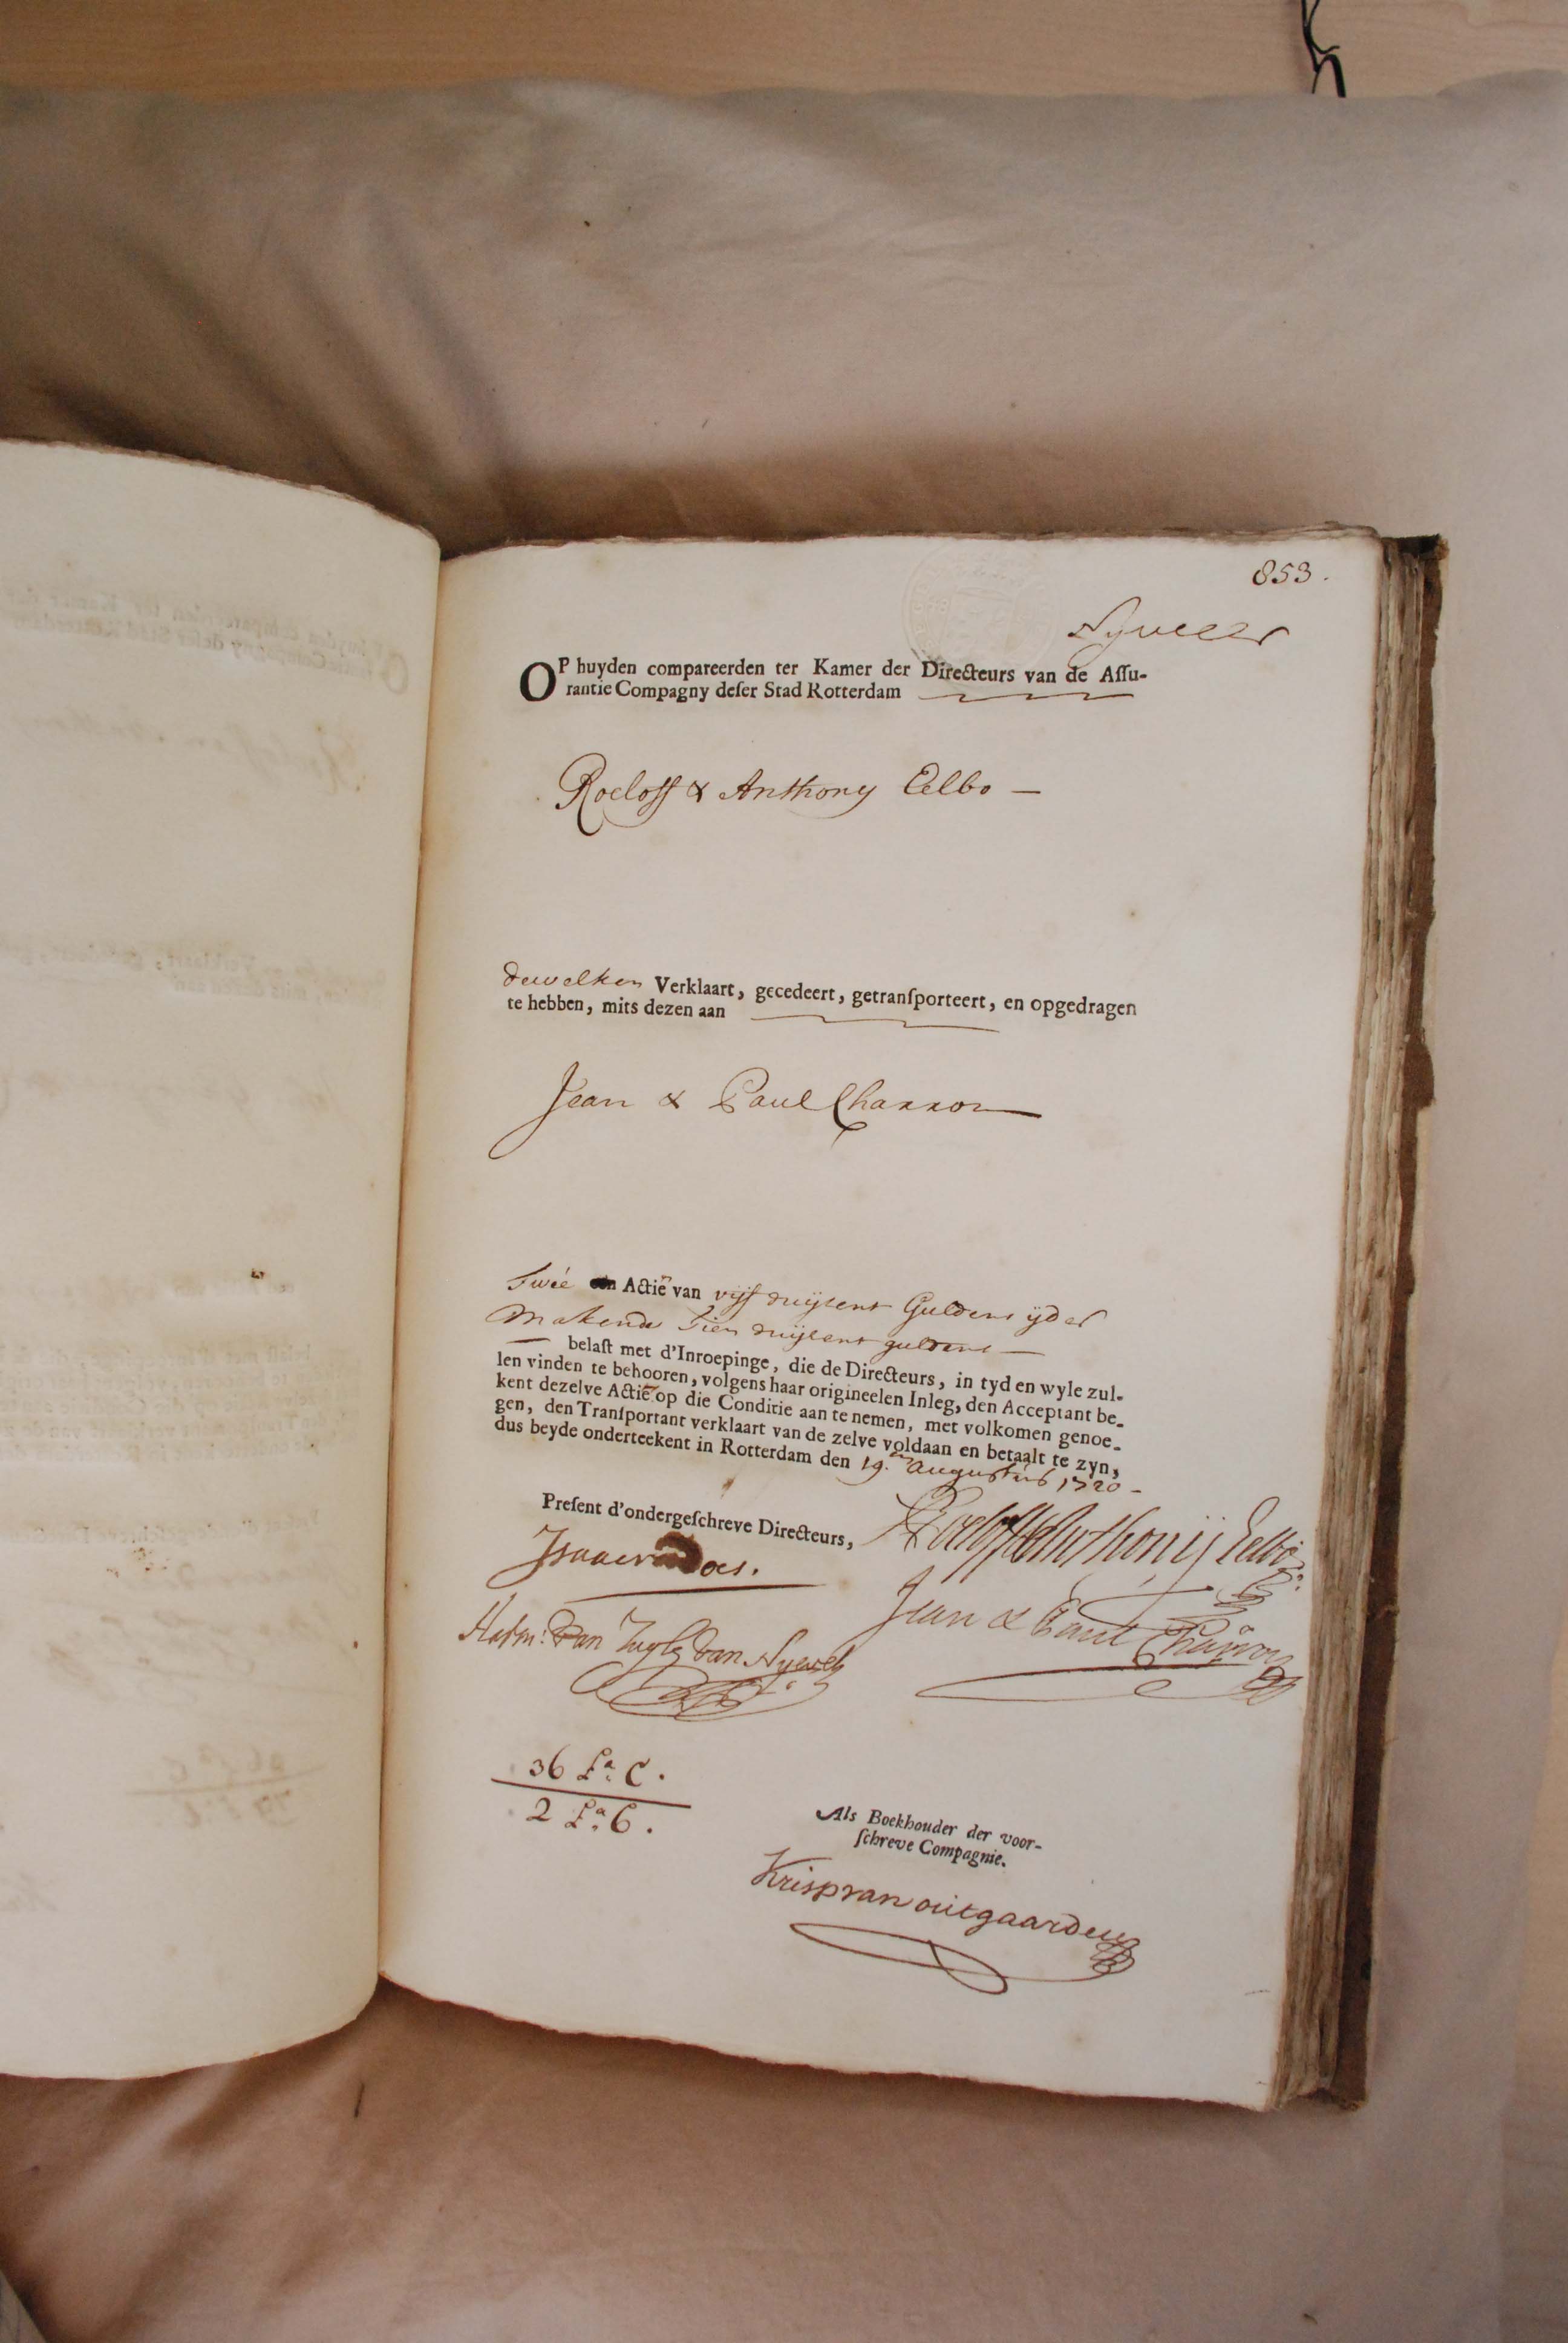 853.
OP huyden compareerden ter Kamer der Directeurs van de Aſſu-
rantie Compagny deſer Stad Rotterdam
Roeloff & Anthony Eelbo —
dewelken Verklaart, gecedeert, getranſporteert, en opgedragen
te hebben, mits dezen aan
Jean & Paul Charron
Twée Actiën van vijf duijsent Guldens ijder
Makende Tien duijsent guldens —
belaſt met d'Inroepinge, die de Directeurs, in tyd en wyle zul-
len vinden te behooren, volgens haar origineelen Inleg, den Acceptant be-
kent dezelve Actiën op die Conditie aan te nemen, met volkomen genoe-
gen, den Tranſportant verklaart van de zelve voldaan en betaalt te zyn,
dus beyde onderteekent in Rotterdam den 19.en Augustus 1720 -
Preſent d'ondergeſchreve Directeurs,
Roeloff & Anthonij Eelbo
Isaac van Does.
Jean & Paul Charron
van Zuylen van Nyevelt
36 La. C.
2 La. C.
Als Boekhouder der voor-
ſchreve Compagnie.
Krisp van outgaarden